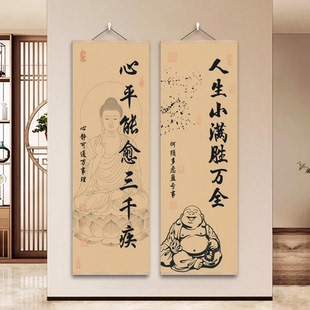 人生小满胜万全
何须多虑盈亏事
心平能愈三千疾
心静可通万事理